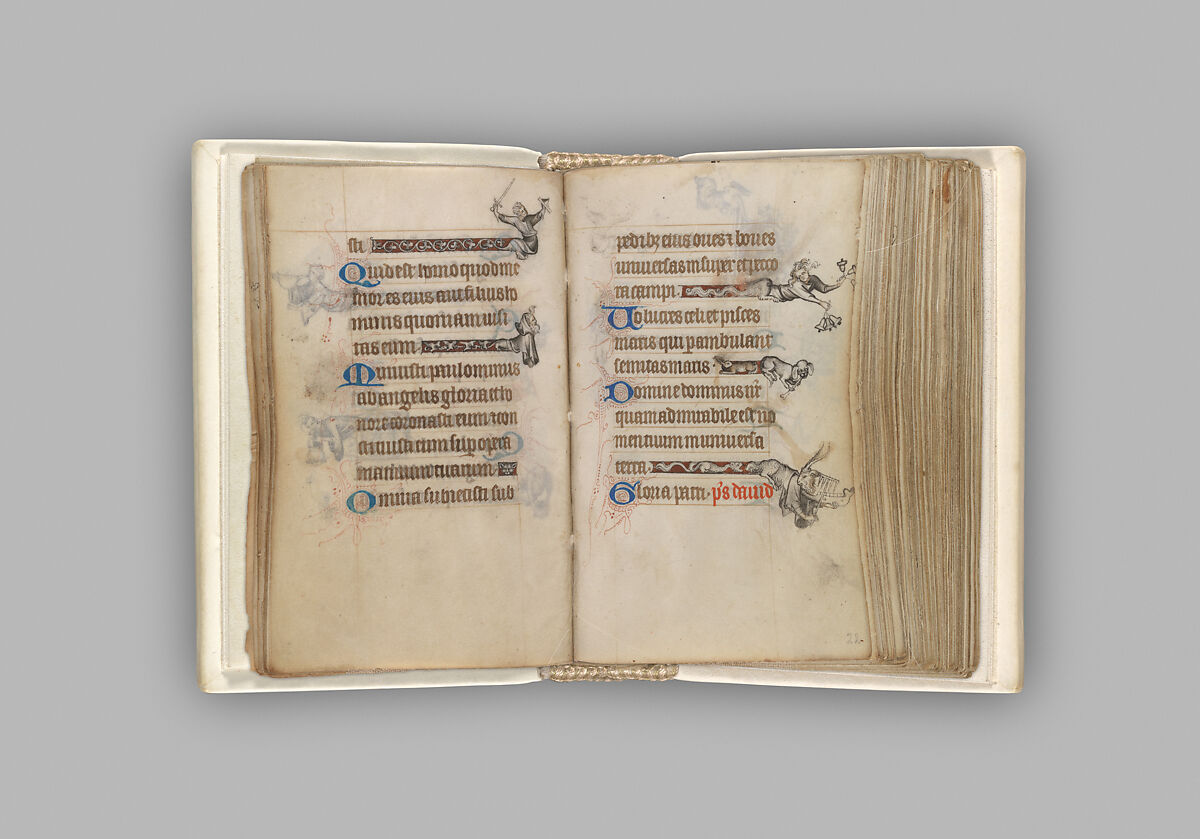 sti
Quid est homo quod me
mor es eius aut filius ho
minis quoniam visi
tas eum.
Minuisti paulominus
ab angelis gloria et ho
nore coronasti eum et con
stituisti eum sup opera
manuum tuarum
Omnia subiecisti sub
pedibz eius oues ⁊ boues
uniuersas insuper et peco
ra campi.
Uolucres celi et pisces
maris qui pambulant
semitas maris.
Domine dominus nr
quam admirabile est no
men tuum in uniuersa
terra.
Gloria patri. ps dauid
22